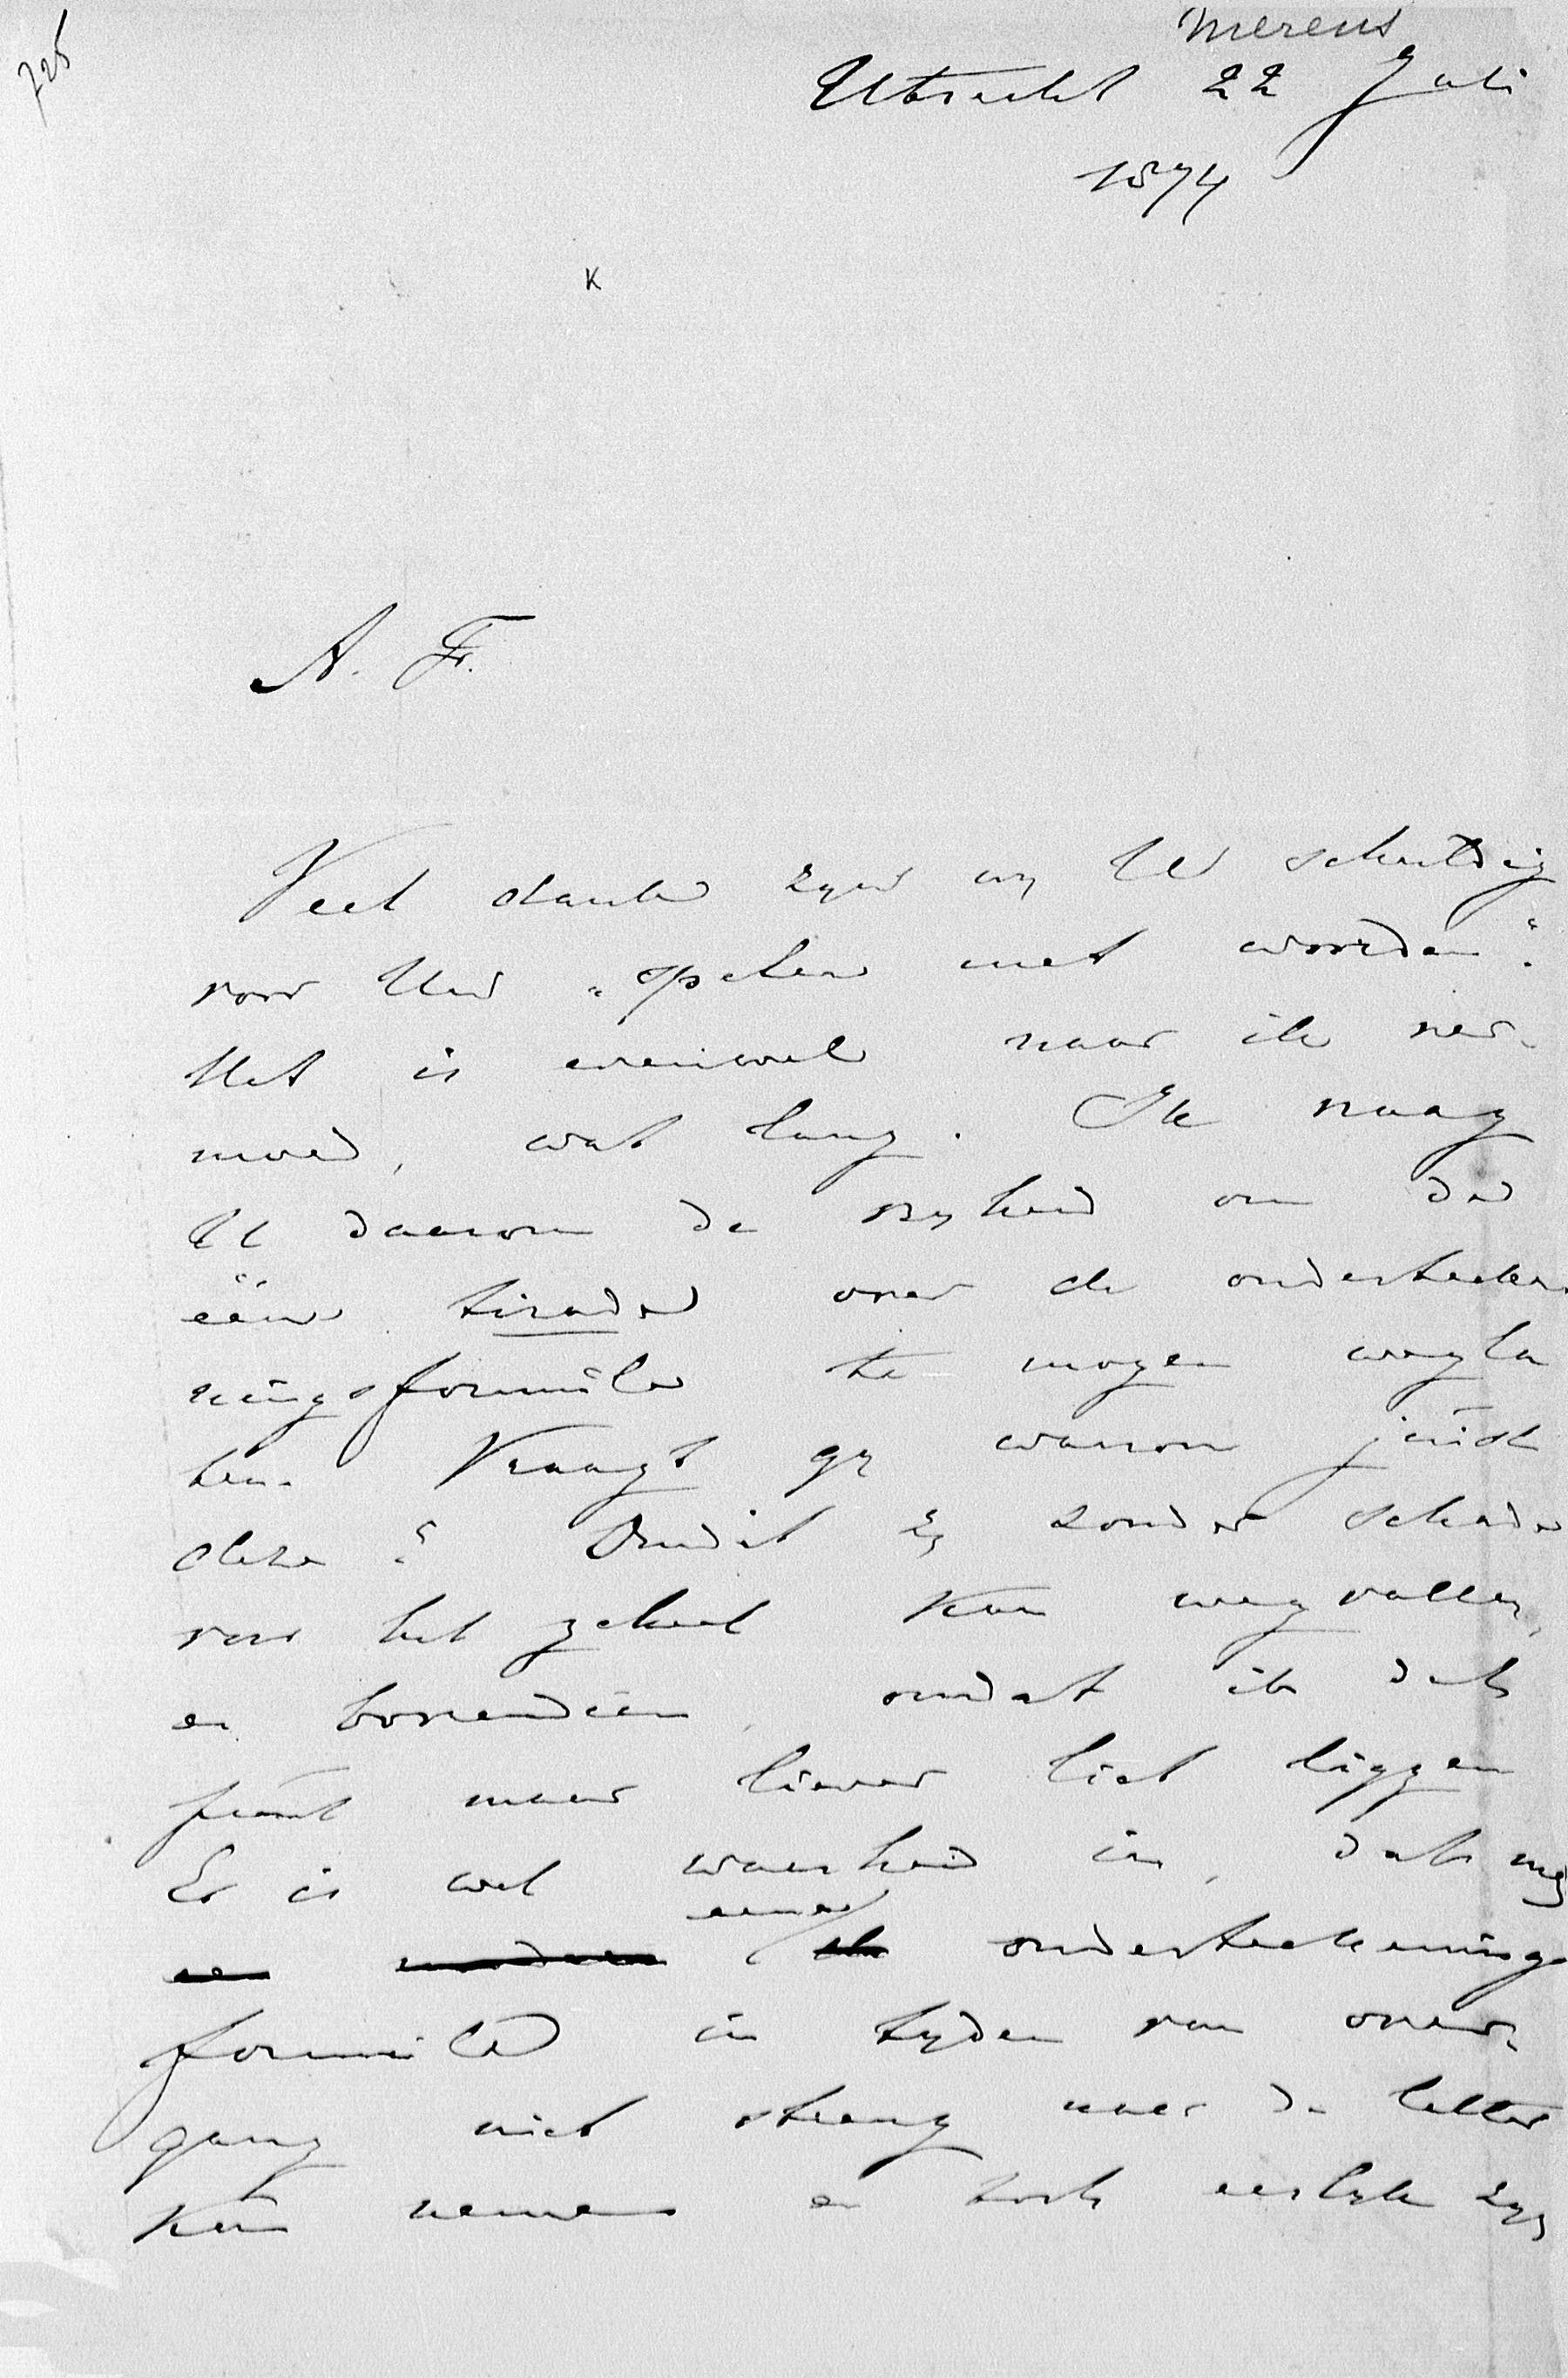 725
Merens
Utrecht 22 Juli
1874
K
A. F.
Veel dank zyn wy U schuldig
voor Uw "spelen met woorden".
Het is evenwel naar ik ver-
moed, wat lang. Ik vraag
U daarom de vryheid om de
ééne tirade over de onderteeke
ningsformule te mogen wegla
ten. Vraagt gy waarom juist
deze? Omdat zy zonder schade
voor het geheel kan wegvallen,
en bovendien omdat ik dat
punt maar liever liet liggen
Er is wel waarheid in, dat men
eene onderteekenings
formule in tyden van over-
gang niet streng naar de letter
kan nemen en toch eerlyk zyn